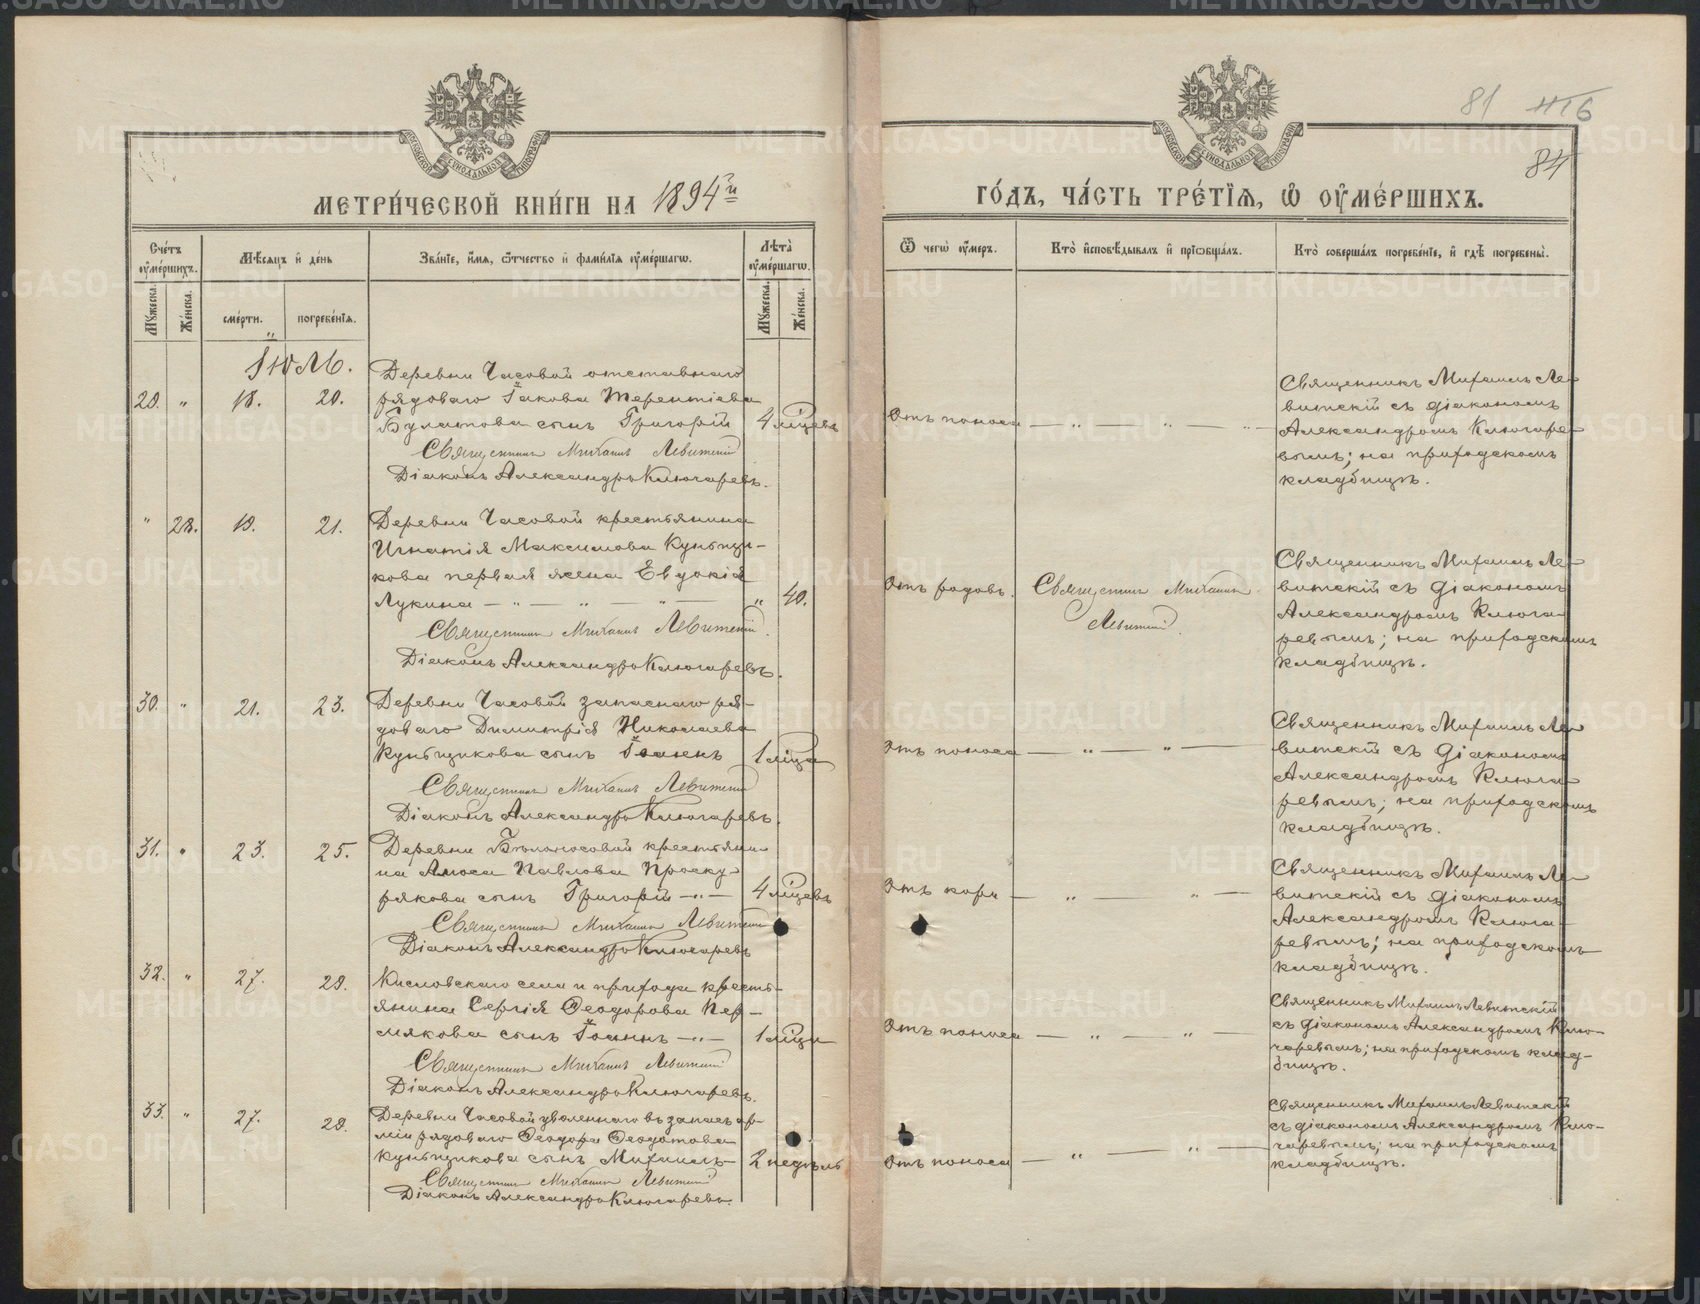 81
84
МЕТРИ́ЧЕСКОЙ КНИ́ГИ НА 1894 й
ГО́ДЪ, ЧА́СТЬ ТРЕ́ТЇѦ, Ѡ҆ ОУ҆МЕ́РШИХЪ.
Сче́тъ оу҆ме́ршихъ.
Мѣ́сяцъ и҆ де́нь
Зва́нїе, и҆́мѧ, ѻ҆́тчество и҆ фами́лїѧ оу҆ме́ршагѡ.
Лѣ́та оу҆ме́ршагѡ.
Ѿ чегѡ̀ оу҆́меръ.
Кто̀ и҆сповѣ́дывалъ и҆ прїѡбща́лъ.
Кто̀ соверша́лъ погребе́нїе, и҆ гдѣ̀ погребены̀.
Мꙋ́жеска.
Же́нска.
сме́рти.
погребе́нїѧ.
Мꙋ́жеска.
Же́нска.
Іюль.
Деревни Часовой отставнаго
29. „ 18. 20. рядоваго Іакова Терентіева
Булатова сынъ Григорій 4 мѣцевъ
Священникъ Михаилъ Левитскій
Діаконъ Александръ Ключаревъ.
Отъ поноса — „ — „ — „
Священникъ Михаилъ Ле-
витскій съ діакономъ
Александромъ Ключаре-
вымъ; на приходскомъ
кладбищѣ.
„ 28. 19. 21. Деревни Часовой крестьянина
Игнатія Максимова Кунъщи-
кова первая жена Евдокія
Лукина — „ — „ — „ — „ 40.
Священникъ Михаилъ Левитскій.
Діаконъ Александръ Ключаревъ.
Отъ родовъ.
Священникъ Михаилъ
Левитскій.
Священникъ Михаилъ Ле-
витскій съ діакономъ
Александромъ Ключа-
ревымъ; на приходскомъ
кладбищѣ.
30. „ 21. 23. Деревни Часовой запаснаго ря-
доваго Димитрія Николаева
Кунъщикова сынъ Іоаннъ 1 мѣца
Священникъ Михаилъ Левитскій
Діаконъ Александръ Ключаревъ.
Отъ поноса — „ — „ —
Священникъ Михаилъ Ле-
витскій съ діакономъ
Александромъ Ключа-
ревымъ; на приходскомъ
кладбищѣ.
31. „ 23. 25. Деревни Бѣлоносовой крестьяни-
на Амоса Павлова Проску-
рякова сынъ Григорій — „ — 4 мѣцевъ
Священникъ Михаилъ Левитскій
Діаконъ Александръ Ключаревъ
Отъ кори — „ — „ —
Священникъ Михаилъ Ле-
витскій съ діакономъ
Александромъ Ключа-
ревымъ; на приходскомъ
кладбищѣ.
32. „ 27. 29. Кисловскаго села и прихода кресть-
янина Сергія Ѳеодорова Пер-
мякова сынъ Іоаннъ — „ — 1 мѣца
Священникъ Михаилъ Левитскій
Діаконъ Александръ Ключаревъ.
Отъ поноса — „ — „ —
Священникъ Михаилъ Левитскій
съ діакономъ Александромъ Клю-
чаревымъ; на приходскомъ клад-
бищѣ.
33. „ 27. 29. Деревни Часовой уволеннаго въ запасъ ар-
міи рядоваго Ѳеодора Ѳеодотова
Кунъщикова сынъ Михаилъ — 2 недѣль
Священникъ Михаилъ Левитскій
Діаконъ Александръ Ключаревъ.
Отъ поноса — „ — „ —
Священникъ Михаилъ Левитскій
съ діакономъ Александромъ Клю-
чаревымъ; на приходскомъ
кладбищѣ.
METRIKI.GASO-URAL.RU